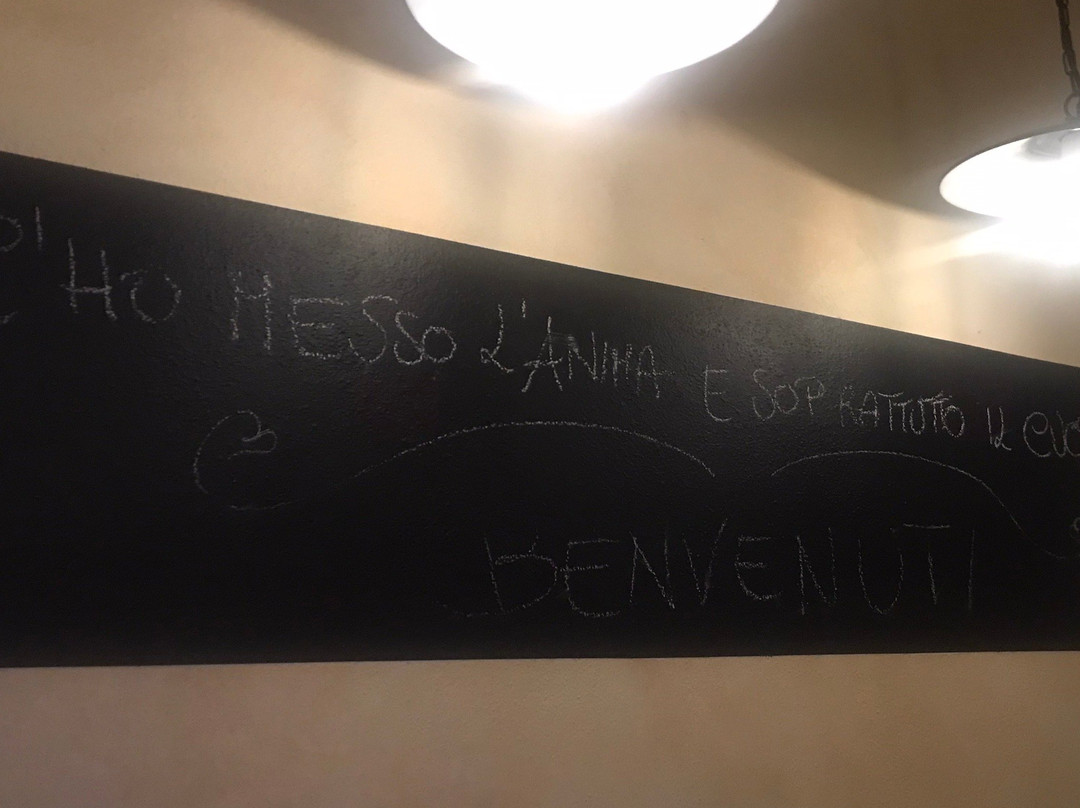 HO MESSO L'ANIMA E SOPRATTUTTO IL
BENVENUTI